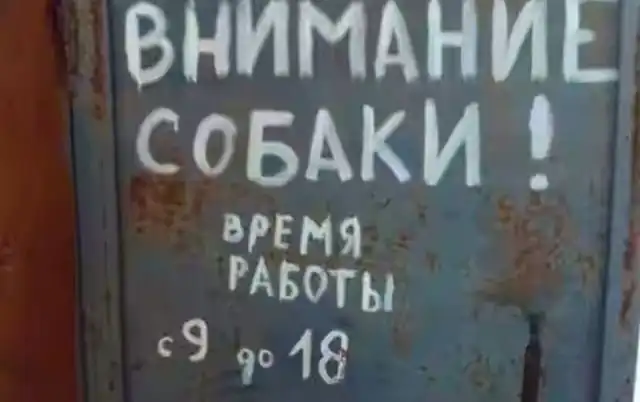 ВНИМАНИЕ
СОБАКИ!
ВРЕМЯ
РАБОТЫ
с 9 до 18